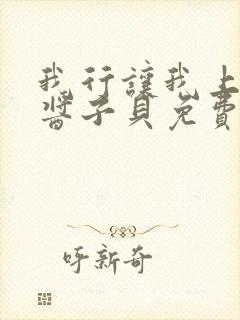 我行讓我上
醬子貝免費
呼新奇